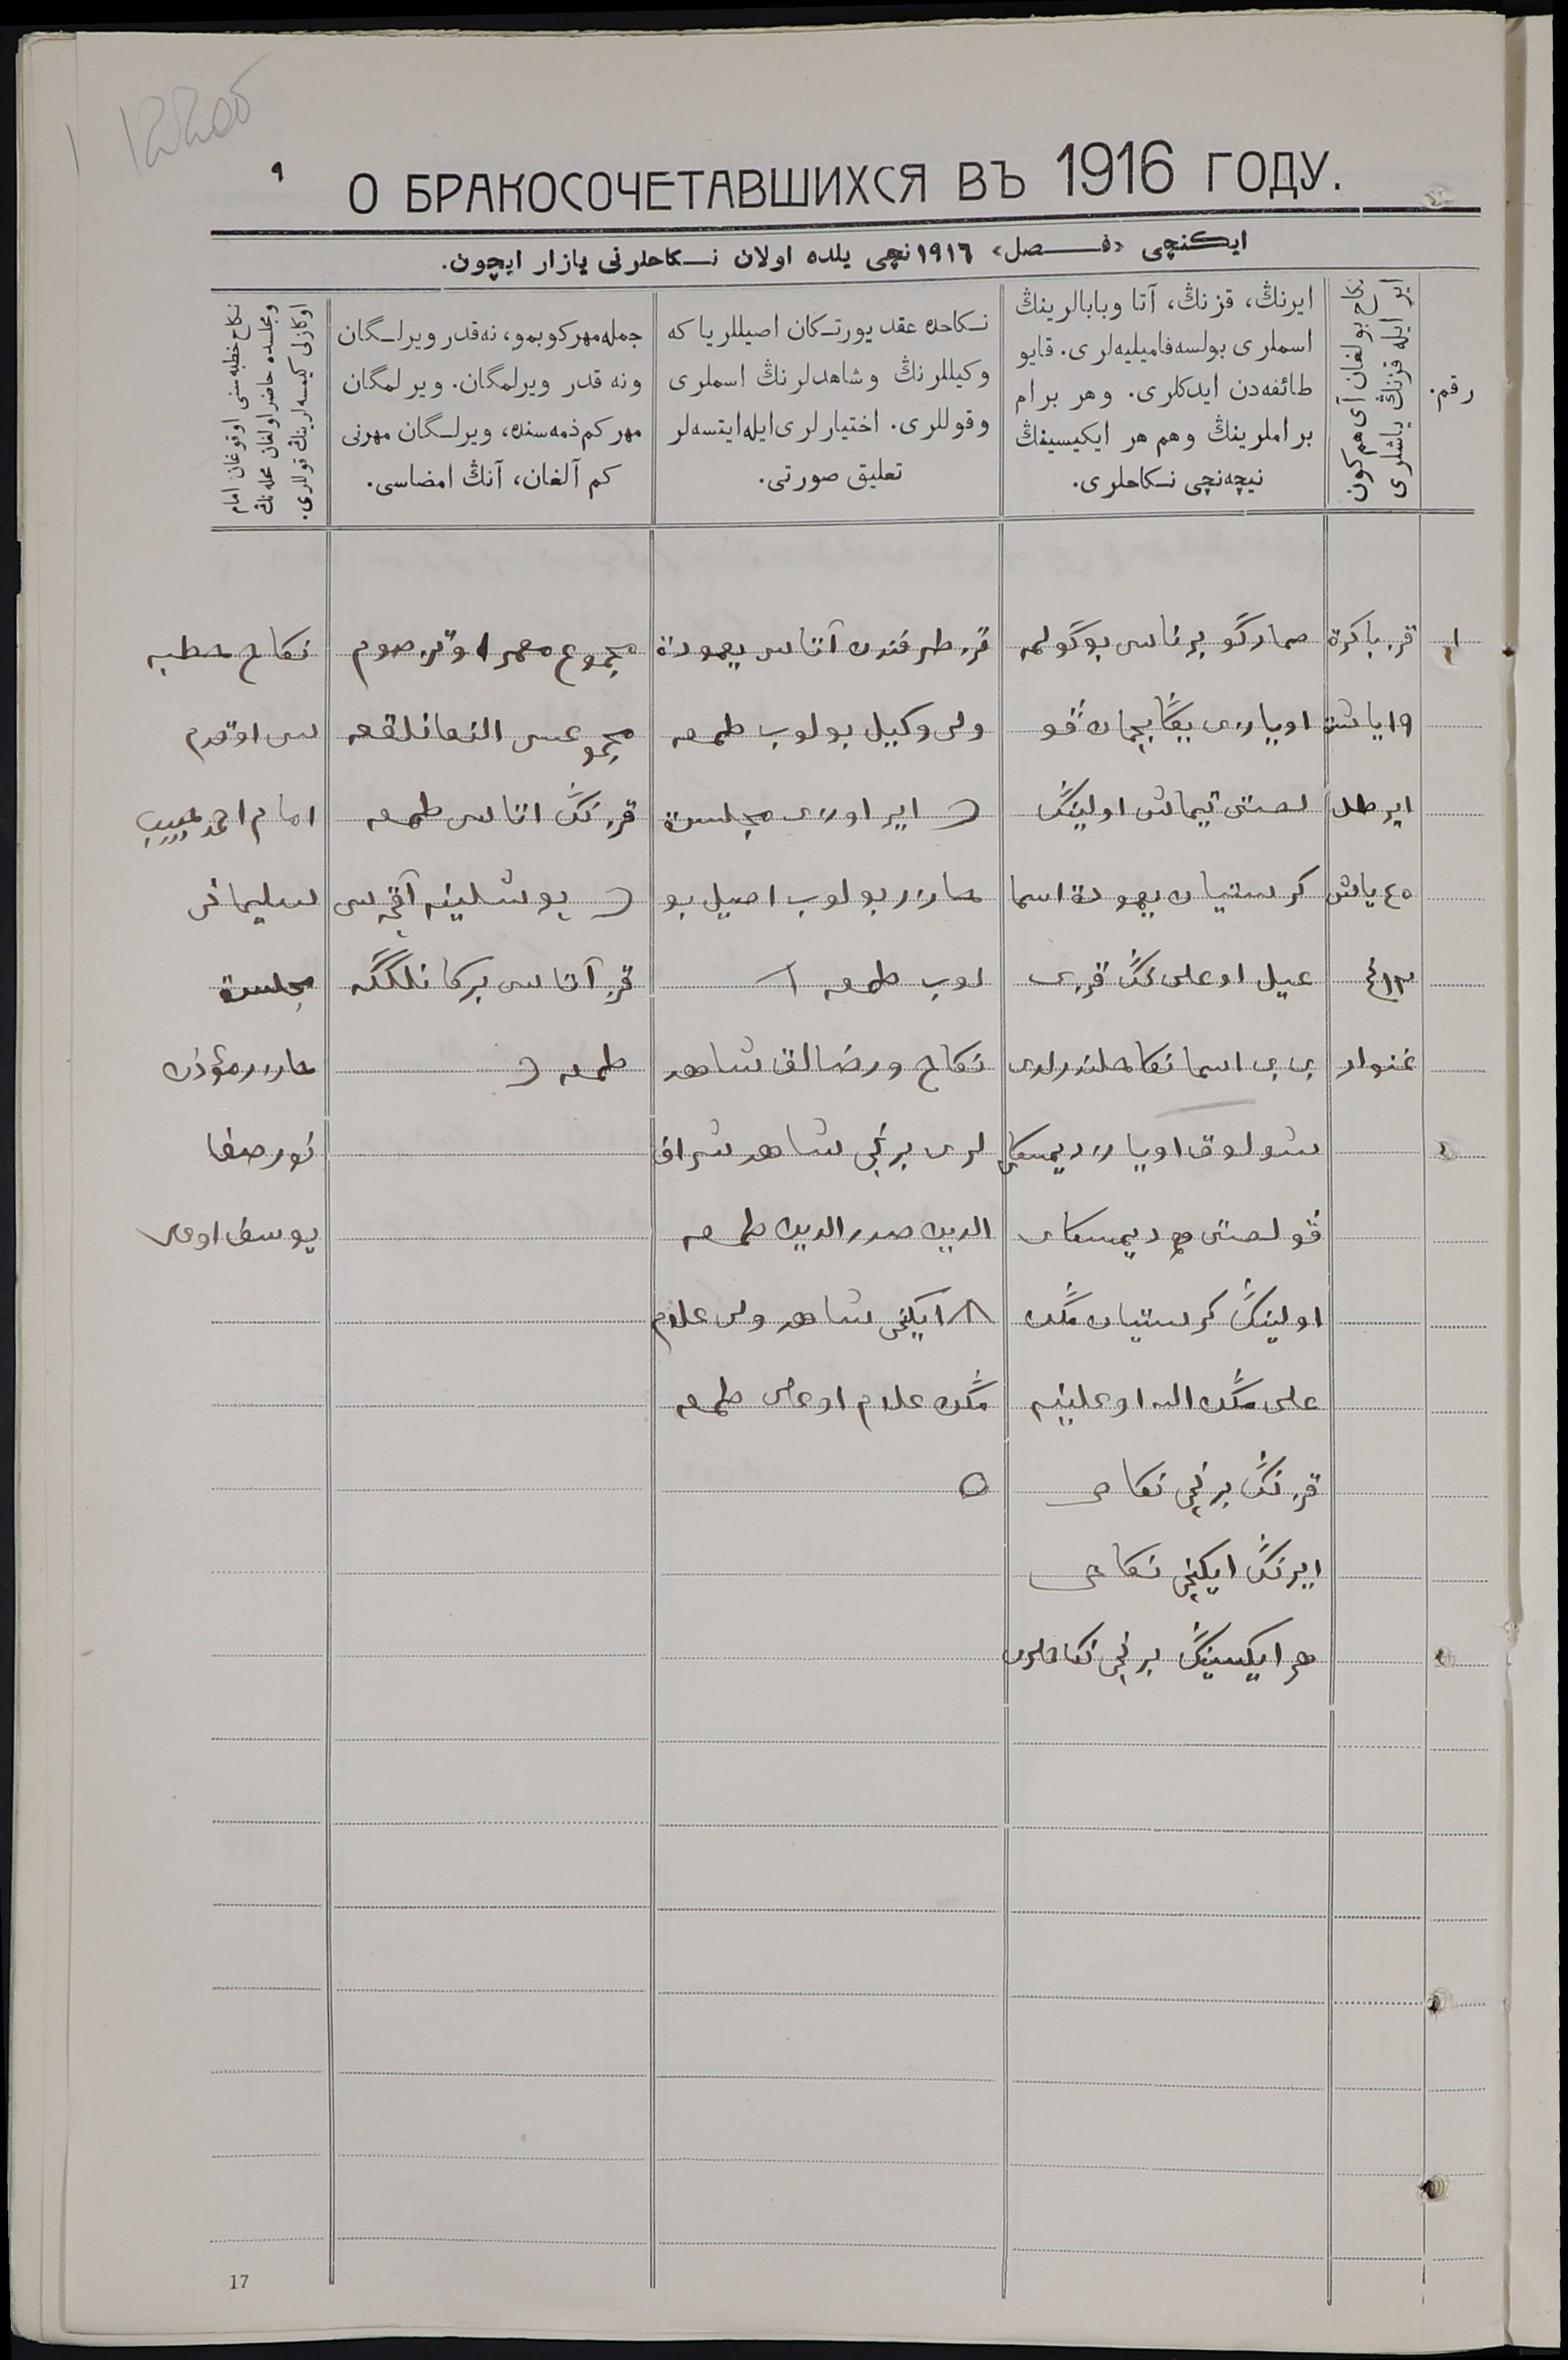 12205
٩
О БРАКОСОЧЕТАВШИХСЯ ВЪ 1916 ГОДУ.
ایکنچی «فصل» ١٩١٦ نچی یلده اولان نکاحلرنی یازار ایچون.
رقم.
نکاح بولغان آی هم کون
ایر ایله قزنڭ یاشلری
ایرنڭ، قزنڭ، آتا وبابالرینڭ
اسملری بولسه فامیلیه‌لری. قایو
طائفه‌دن ایدکلری. وهر برام
براملرینڭ وهم هر ایکیسینڭ
نیچه‌نچی نکاحلری.
نکاحده عقد یورتکان اصیللریا که
وکیللرنڭ وشاهدلرنڭ اسملری
وقوللری. اختیارلری ایله ایتسه‌لر
تعلیق صورتی.
جمله مهر کوبمو، نه‌قدر ویرلگان
ونه قدر ویرلمگان. ویرلمگان
مهر کم ذمه‌سنده، ویرلگان مهرنی
کم آلغان، آنڭ امضاسی.
نکاح خطبه‌سنی اوقوغان امام
ومجلسده حاضر اولغان محله‌نڭ
اوکازلی کیمسه‌لرینڭ قوللری.
١
قز باکرة
١٩ یاشنده
ایر
٤٥ یاش
غنوار
صمار گو برناسی بوگولمه
اویازی
لصتی تیماش اولینڭ
کرستیان یهودة اسما
عیل اوغلی نڭ قزی
بی بی اسما نکاحلندرلدی
شولوق اویاز دیمسکای
ڤولصتی دیمسکای
اولینڭ کرستیان
علی الله اوغلینه
قزنڭ برنچی نکاحی
ایرنڭ ایکنچی نکاحی
هر ایکسینڭ برنچی نکاحلری
قز طرفندن آتاسی یهودة
ولی وکیل بولوب طمغه
ایر اوزی مجلسدة
حاضر بولوب اصیل بو
لوب طمغه
نکاح ورضالق شاهد
لری برنچی شاهد شراف
الدین صدرالدین طمغه
ایکنچی شاهد ولی علام
علام اوغلی طمغه
مجموع مهر اوتز صوم
مجموعسی
قزنڭ اتاسی طمغه
بوشلینه آقچه سی
قز آتاسی
طمغه
نکاح خطبه
سی اوقدم
امام احمد حبیب
سلیمانی
مجلسدة
حاضر مؤذن
نور صفا
یوسف اوغلی
17